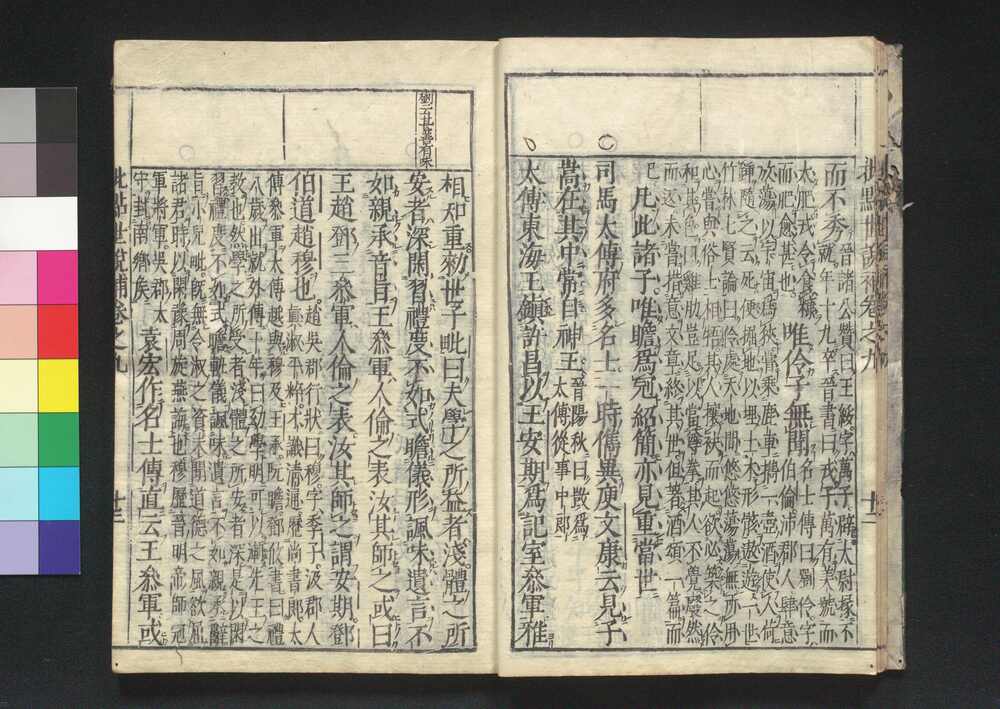 批點世說補卷之九　十二
而不秀晉諸公贊曰王綏字萬子辟太尉掾不
就年十九卒晉書曰戎子萬有美號而
太肥戎令食糠
而肥愈甚也
唯伶子無聞名士傳曰劉伶字
伯倫沛郡人肆意
放蕩以宇宙爲狹嘗乘鹿車攜一壺酒使人荷
鍤隨之云死便掘地以埋土木形骸遨遊一世
竹林七賢論曰伶處天地間悠悠蕩蕩無所用
心嘗與俗士相牾其人攘袂而起欲必築之伶
和其色曰雞肋豈足以當尊拳其人不覺廢然
而返未嘗措意文章終其世但著酒頌一篇而
已凡此諸子唯瞻爲冠紹簡亦見重當世
司馬太傅府多名士一時儁異庾文康云見子
嵩在其中常自神王晉陽秋曰敳爲
太傅從事中郎
太傅東海王鎮許昌以王安期爲記室參軍雅
相知重勅世子毗曰夫學之所益者淺體之所
安者深閑習禮度不如式瞻儀形諷味遺言不
如親承音旨王參軍人倫之表汝其師之或曰
王趙鄧三參軍人倫之表汝其師之謂安期鄧
伯道趙穆也趙吳郡行狀曰穆字季子汲郡人
眞淑平粹才識清通歷尚書郎太
傅參軍太傅越與穆及王承阮瞻鄧攸書曰禮
八歲出就外傅十年曰幼學明可以漸先王之
教也然學之所受者淺體之所安者深是以閑
習禮度不如式瞻軌儀諷味遺言不如親承辭
旨小兒毗旣無令淑之資未聞道德之風欲屈
諸君時以閑豫周旋燕誨也穆歷晉明帝師冠
軍將軍吳郡太
守封南鄉侯
袁宏作名士傳直云王參軍或
批點世說補卷之九　十三